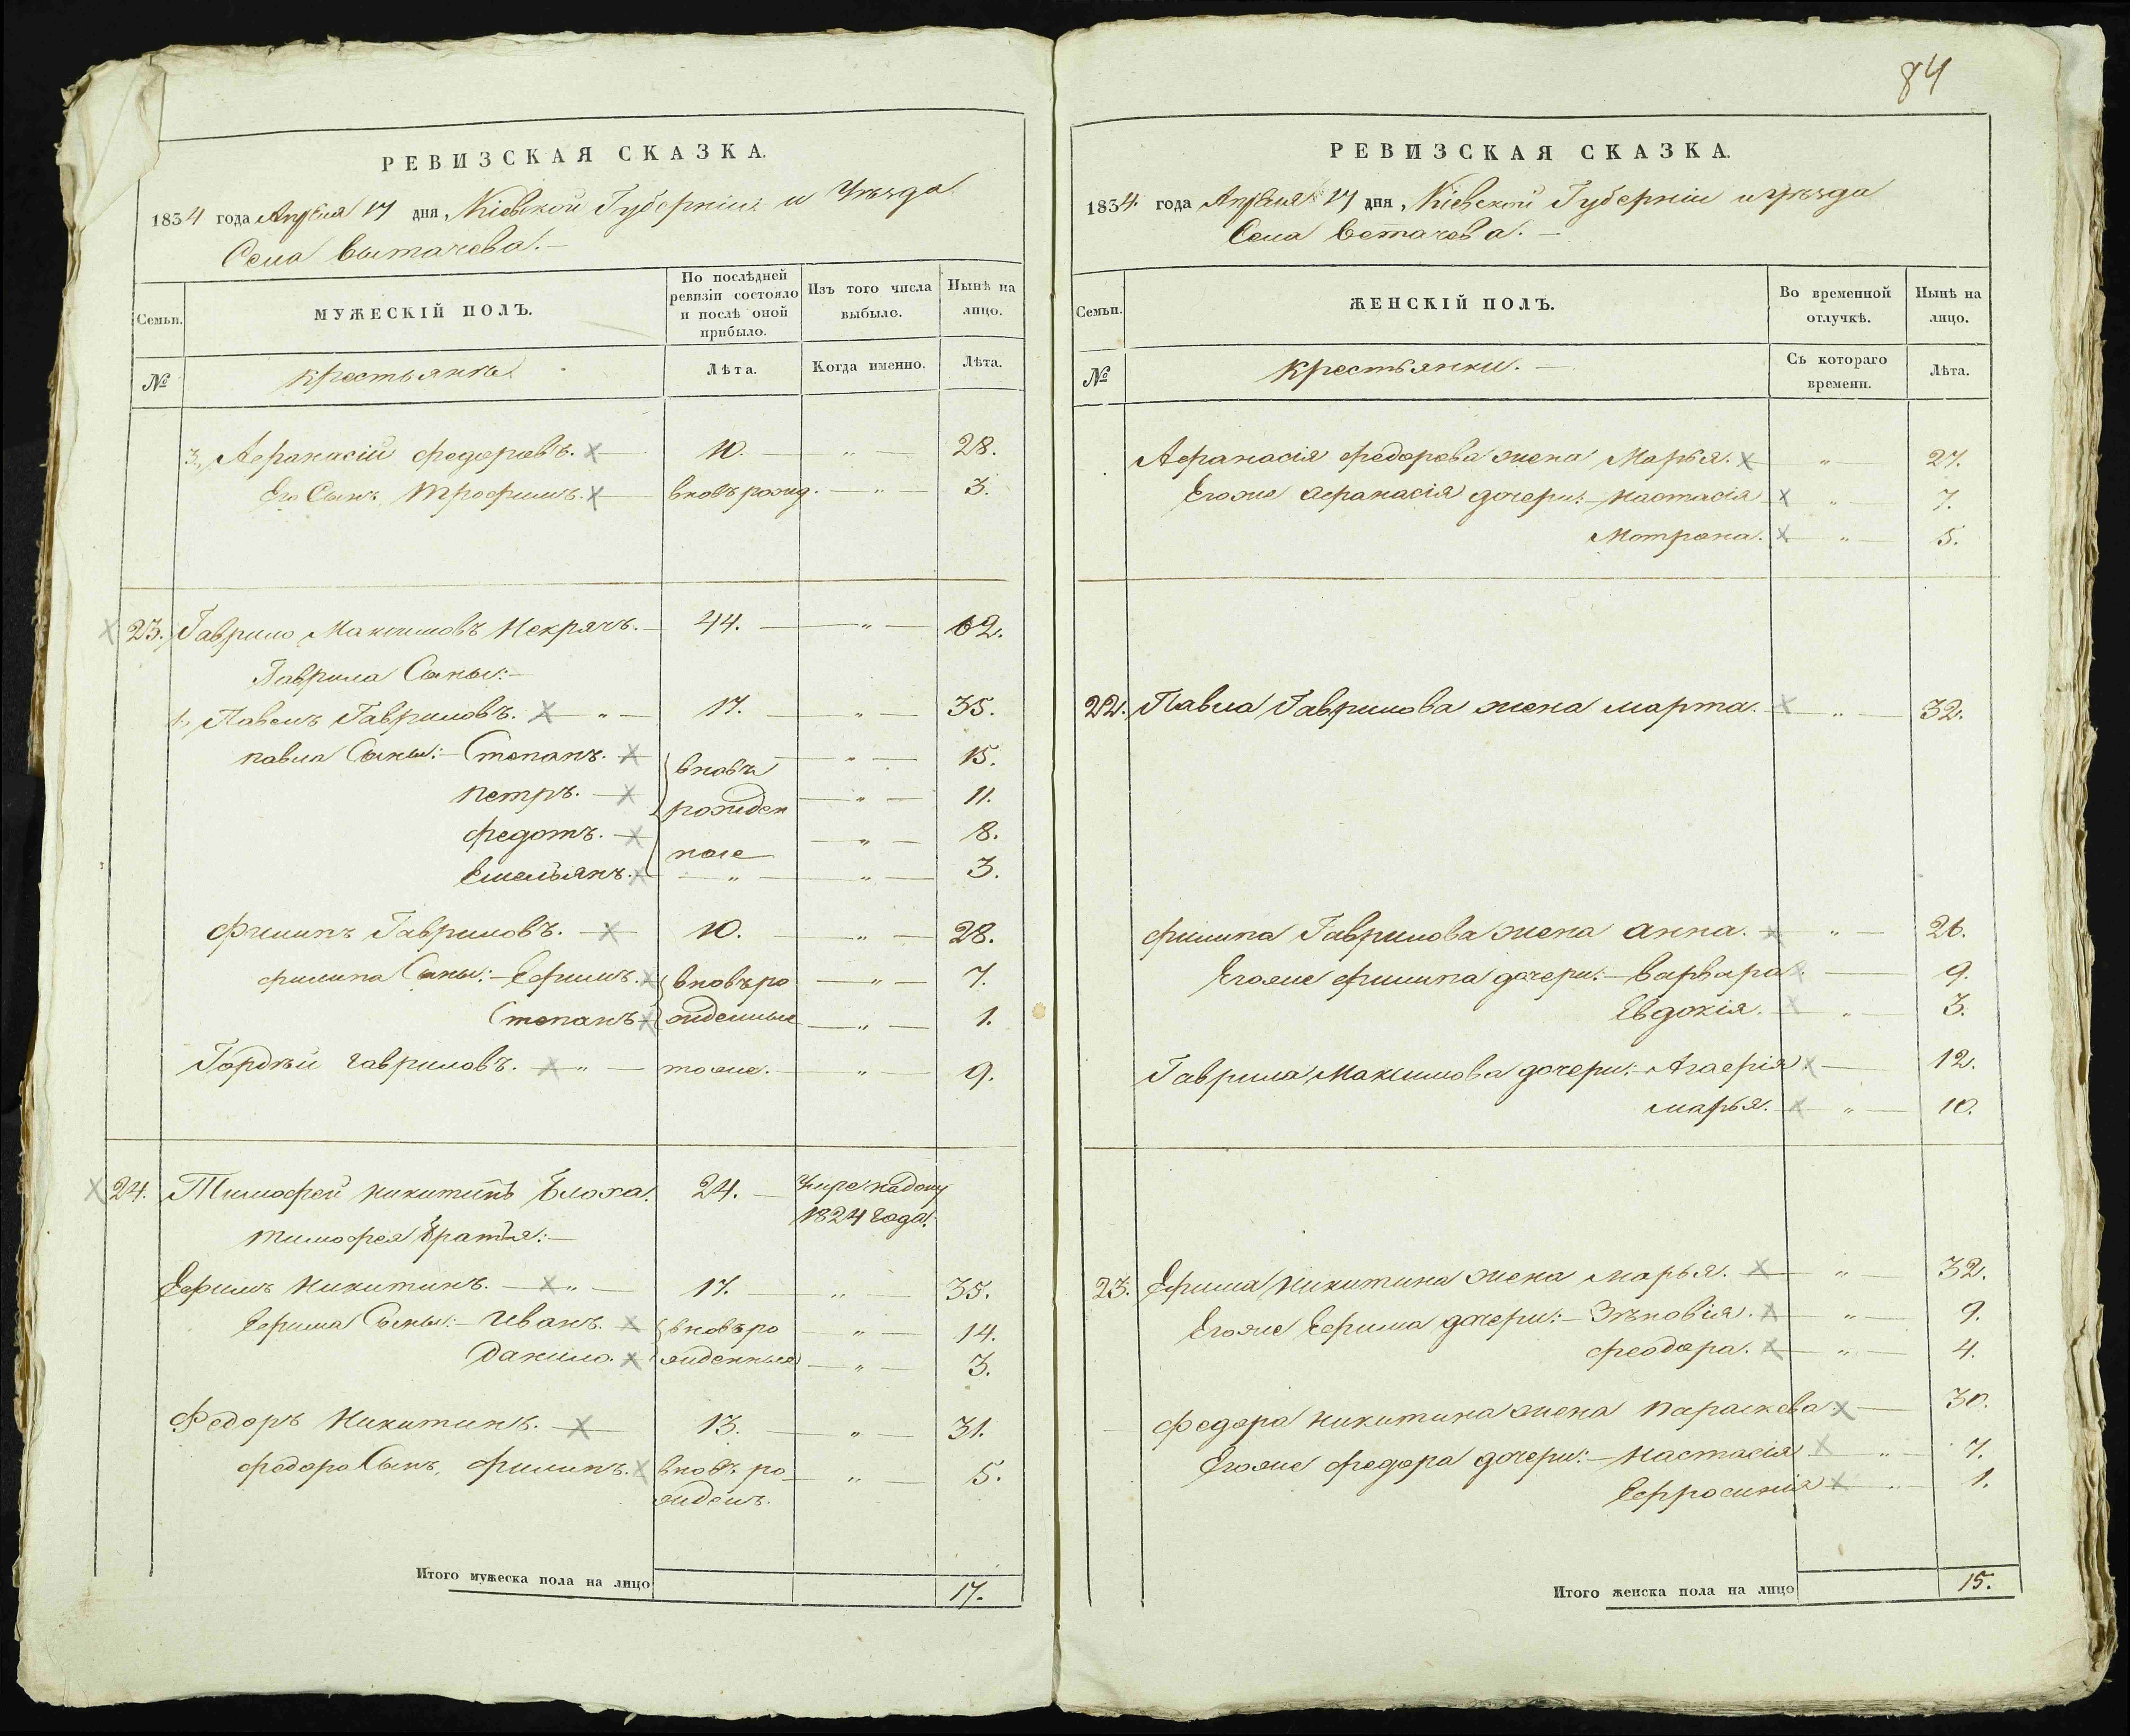 РЕВИЗСКАЯ СКАЗКА.
1834 года Апреля 17 дня, Кіевской Губерніи и Уѣзда
Села Вытачева. —
Семьи. МУЖЕСКІЙ ПОЛЪ. По послѣдней ревизіи состояло и послѣ оной прибыло. Изъ того числа выбыло. Нынѣ на лицо.
№ крестьяне Лѣта. Когда именно. Лѣта.
3., Афанасій Федоровъ. 10. — „ — 28.
Его Сынъ, Трофимъ. вновь рожд. — „ — 3.
23. Гаврило Максимовъ Некрячъ. — 44. — „ — 62.
Гаврила Сыны: —
1., Павелъ Гавриловъ. — „ — 17. — „ — 35.
павла Сыны: — Степанъ. вновь — „ — 15.
Петръ. рожден — „ — 11.
Федотъ. — „ — 8.
ные
Емельянъ. — „ — „ — 3.
Филипъ Гавриловъ. — 10. — „ — 28.
филипа Сыны: — Ефимъ. вновь ро — „ — 7.
Степанъ. жденные — „ — 1.
Гордѣй гавриловъ. — „ — тоже. — „ — 9.
24. Тимофей Никитинъ Блоха. 24. — Умре надому
1824 года.
тимофея братья: —
Ефимъ Никитинъ. — „ — 17. — „ — 35.
Ефима Сыны: — Иванъ. вновь ро — „ — 14.
Данило. жденные — „ — 3.
Федоръ Никитинъ. — 13. — „ — 31.
федора Сынъ, Филипъ. вновь ро — „ — 5.
жденъ.
Итого мужеска пола на лицо 17.
84
РЕВИЗСКАЯ СКАЗКА.
1834. года Апреля 17 дня, Кіевской Губерніи и Уѣзда
Села Ветачева. —
Семьи. ЖЕНСКІЙ ПОЛЪ. Во временной отлучкѣ. Нынѣ на лицо.
№ крестьянки. — Съ котораго времени. Лѣта.
Афанасія федорова жена Марья. — „ — 27.
Егоже Афанасія дочери: — Настасія — „ — 7.
Мотрона. — „ — 5.
22. Павла Гаврилова жена марта. — „ — 32.
филипа Гаврилова жена анна. — „ — 26.
Егоже филипа дочери: — варвара. — 9.
Евдокія. — „ — 3.
Гаврила Максимова дочери: — Агафія — 12.
марья. — „ — 10.
23. Ефима Никитина жена марья. — „ — 32.
Егоже Ефима дочери: — Зѣновія. — „ — 9.
феодора. — „ — 4.
Федора никитина жена параскева — 30.
Егоже федора дочери: — Настасія — „ — 7.
Ефросинія — „ — 1.
Итого женска пола на лицо 15.